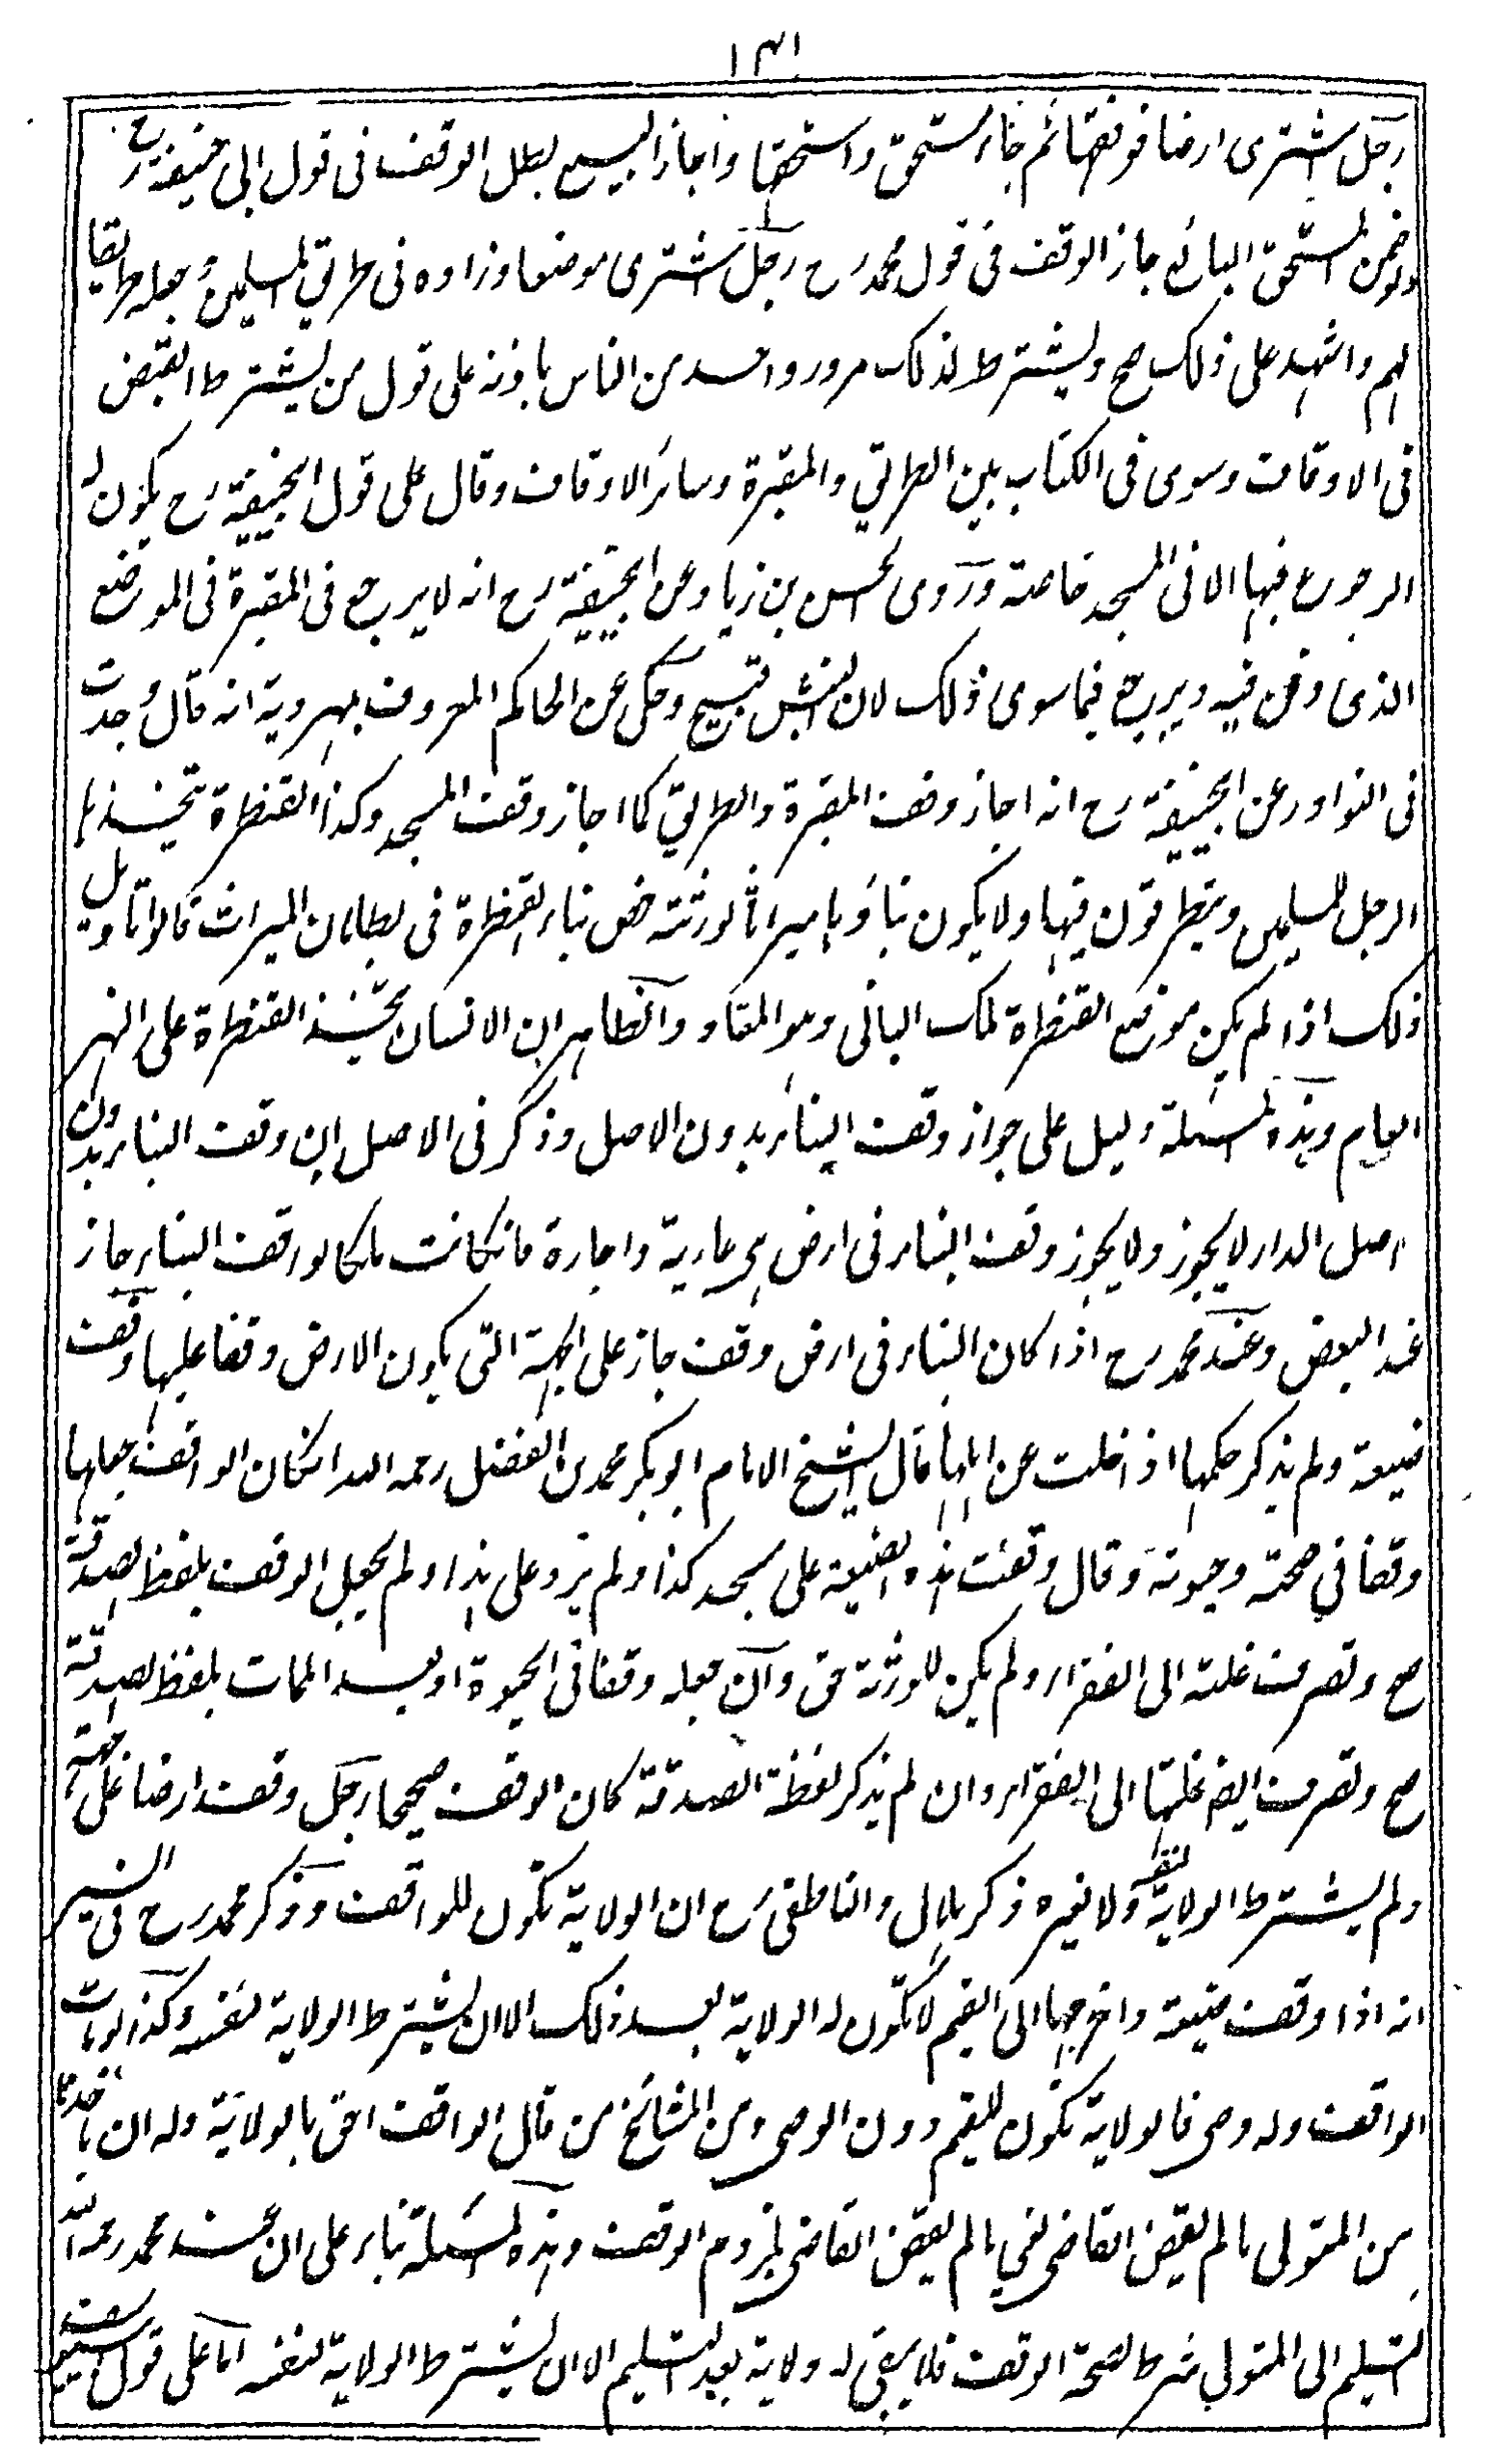 ۱۳۱
رجل اشترى ارضا فوقفها ثم جاء المستحق واستحقها واجاز البيع بطل الوقف فى قول ابى حنيفة رح
ولو ضمن المستحق البائع جاز الوقف فى قول محمد رح رجل اشترى موضعا وزاده فى طريق المسلمين وجعله طريقا
لهم واشهد على ذلك صح ويشترط لذلك مرور واحد من الناس باذنه على قول من يشترط القبض
فى الاوقاف وسوى فى الكتاب بين الطريق والمقبرة وسائر الاوقاف وقال على قول ابيحنيفة رح يكون له
الرجوع فيها الا فى المسجد خاصة وروى الحسن بن زياد عن ابيحنيفة رح انه لا يرجع فى المقبرة فى الموضع
الذى دفن فيه ويرجع فيما سوى ذلك لان النبش قبيح وحكى عن الحاكم المعروف بمهرويه انه قال وجدت
فى النوادر عن ابيحنيفة رح انه اجاز وقف المقبرة والطريق كما اجاز وقف المسجد وكذا القنطرة يتخذها
الرجل للمسلمين ويتطرقون فيها ولا يكون بناؤها ميراثا لورثته خص بناء القنطرة فى بطلان الميراث قالوا تاويل
ذلك اذا لم يكن موضع القنطرة ملك البانى وهو المعتاد والظاهر ان الانسان يتخذ القنطرة على النهر
العام وهذه المسئلة دليل على جواز وقف البناء بدون الاصل وذكر فى الاصل ان وقف البناء بدون
اصل الدار لا يجوز ولا يجوز وقف البناء فى ارض هى عارية واجارة فانكانت ملكا لواقف البناء جاز
عند البعض وعند محمد رح اذا كان البناء فى ارض وقف جاز على الجهة التى يكون الارض وقفا عليها وقف
ضيعة ولم يذكر حكمها اذ اخلت عن اهلها قال الشيخ الامام ابو بكر محمد بن الفضل رحمه الله انكان الواقف جعلها
وقفا في صحته وحيوته وقال وقفت هذه الضيعة على مسجد كذا ولم يزد على هذا ولم يجعل الوقف بلفظ الصدقة
صح وتصرف غلته الى الفقراء ولم يكن للورثة حق وان جعله وقفا فى الحيوة او بعد الممات بلفظ الصدقة
صح وتصرف ايضا غلتها الى الفقراء وان لم يذكر لفظة الصدقة كان الوقف صحيحا رجل وقف ارضا على جهة
ولم يشترط الولاية لنفسه ولا لغيره ذكر هلال والناطفى رح ان الولاية تكون للواقف وذكر محمد رح فى السير
انه اذا وقف ضيعة واخرجها الى القيم لا تكون له الولاية بعد ذلك الا ان يشترط الولاية لنفسه وكذا لو مات
الواقف وله وصى فالولاية تكون للقيم دون الوصى ومن المشائخ من قال الواقف احق بالولاية وله ان ياخذها
من المتولى ما لم يقض القاضى يعنى ما لم يقض القاضى بلزوم الوقف وهذه المسئلة بناء على ان عند محمد رحمه الله
التسليم الى المتولي شرط لصحة الوقف فلا يبقى له ولاية بعد التسليم الا ان يشترط الولاية لنفسه اما على قول ابى يوسف